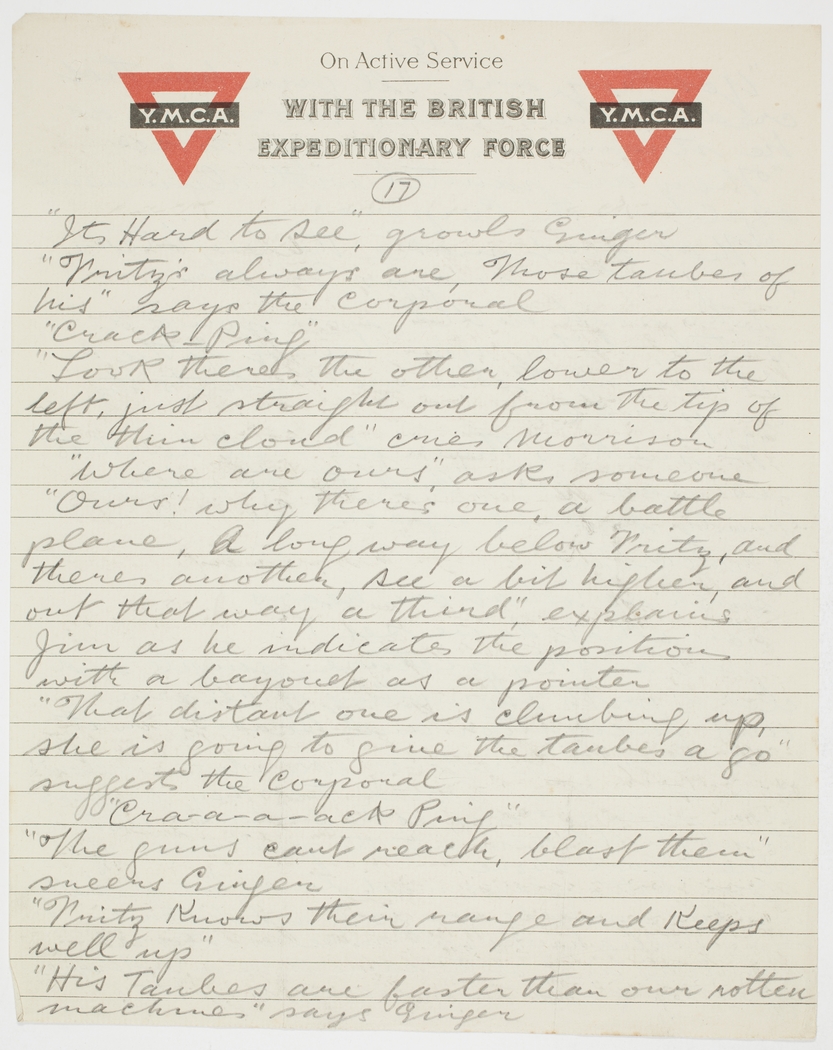 On Active Service
Y.M.C.A. WITH THE BRITISH Y.M.C.A.
EXPEDITIONARY FORCE
17
"Its Hard to see", growls Ginger
"Fritz's always are, Those taubes of
his" says the Corporal
"Crack-Ping"
"Look theres the other, lower to the
left, just straight out from the tip of
the thin cloud" cries Morrison
"Where are ours", asks someone
"Ours! why theres one, a battle
plane, A long way below Fritz, and
theres another, see a bit higher, and
out that way a third", explains
Jim as he indicates the positions
with a bayonet as a pointer
"That distant one is climbing up,
she is going to give the taubes a go"
suggests the Corporal
"Cra-a-a-ack Ping"
"The guns cant reach, blast them"
sneers Ginger
"Fritz Knows their range and Keeps
well up"
"His Taubes are faster than our rotten
machines" says Ginger